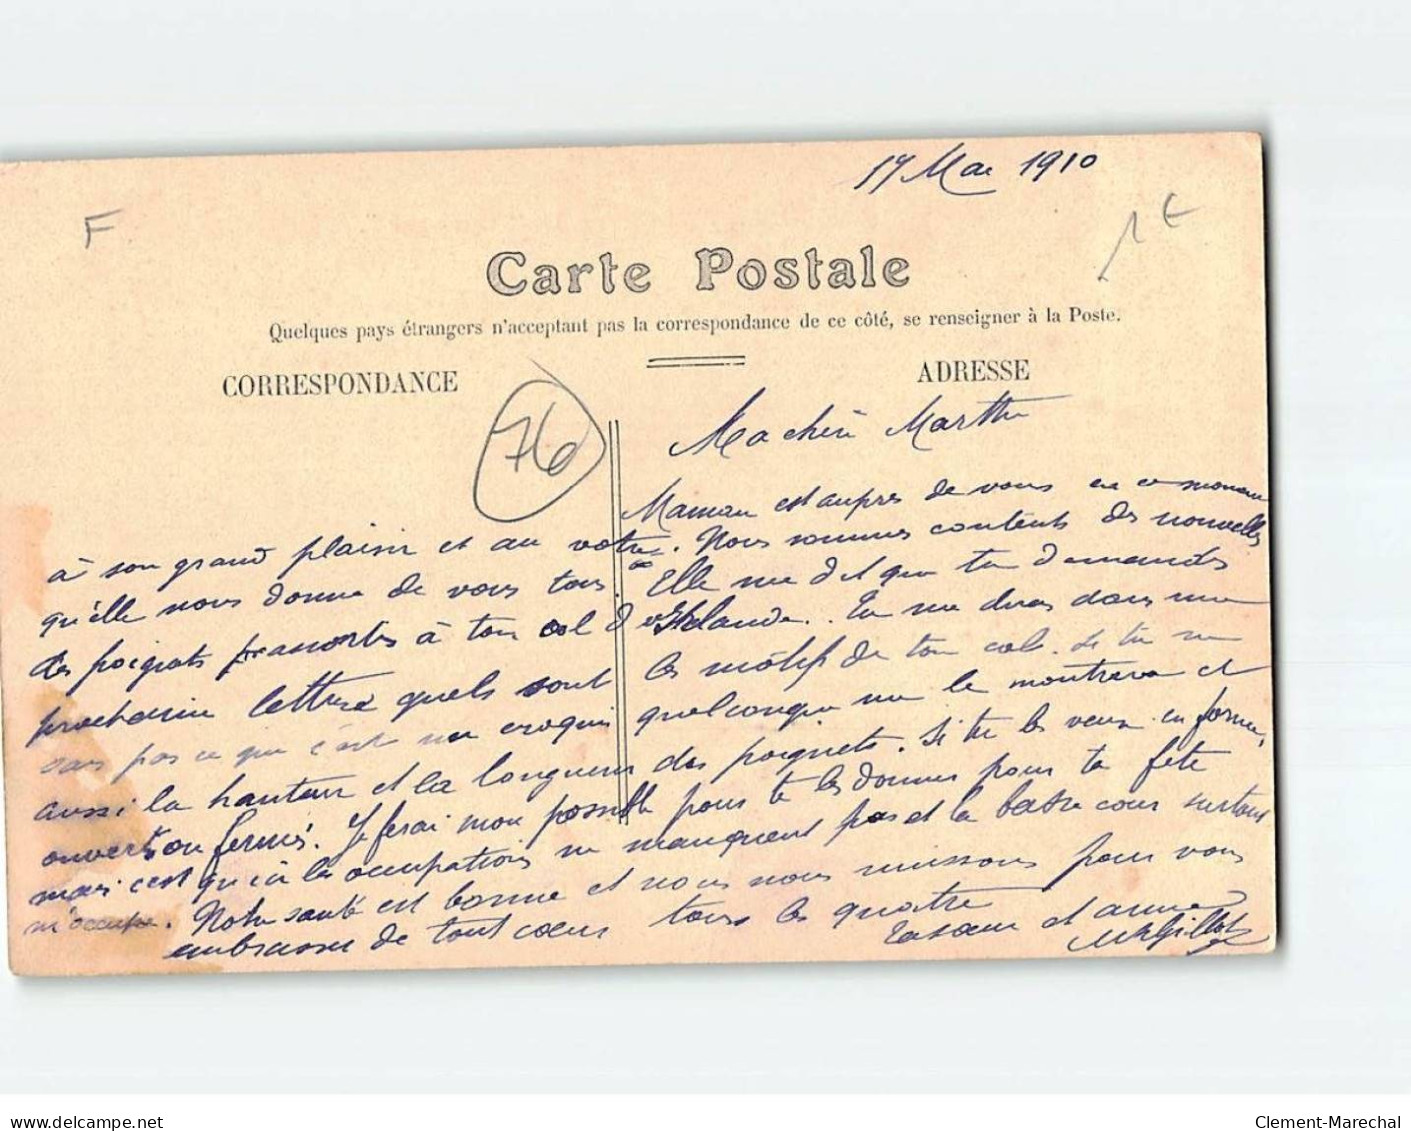 17 Mai 1910
F
1 €
Carte Postale
Quelques pays étrangers n'acceptant pas la correspondance de ce côté, se renseigner à la Poste.
CORRESPONDANCE
ADRESSE
76
Ma chère Marthe
Maman est auprès de vous en ce moment
à son grand plaisir et au votre. Nous sommes contents des nouvelles
qu'elle nous donne de vous tous. Elle me dit que tu demandes
des poignets assortis à ton col d'Irlande. Tu me diras dans une
prochaine lettre quels sont les motifs de ton col. Si tu ne
sais pas ce que c'est un croquis quelconque me le montrera et
aussi la hauteur et la longueur des poignets. Si tu les veux en forme,
ouverts ou fermés. Je ferai mon possible pour te les donner pour ta fête
mais c'est qu'ici les occupations ne manquent pas et la basse cour surtout
m'occupe. Notre santé est bonne et nous nous unissons pour vous
embrasser de tout cœur tous les quatre
Ta sœur et amie
Gillot
Clement-Marechal
www.delcampe.net